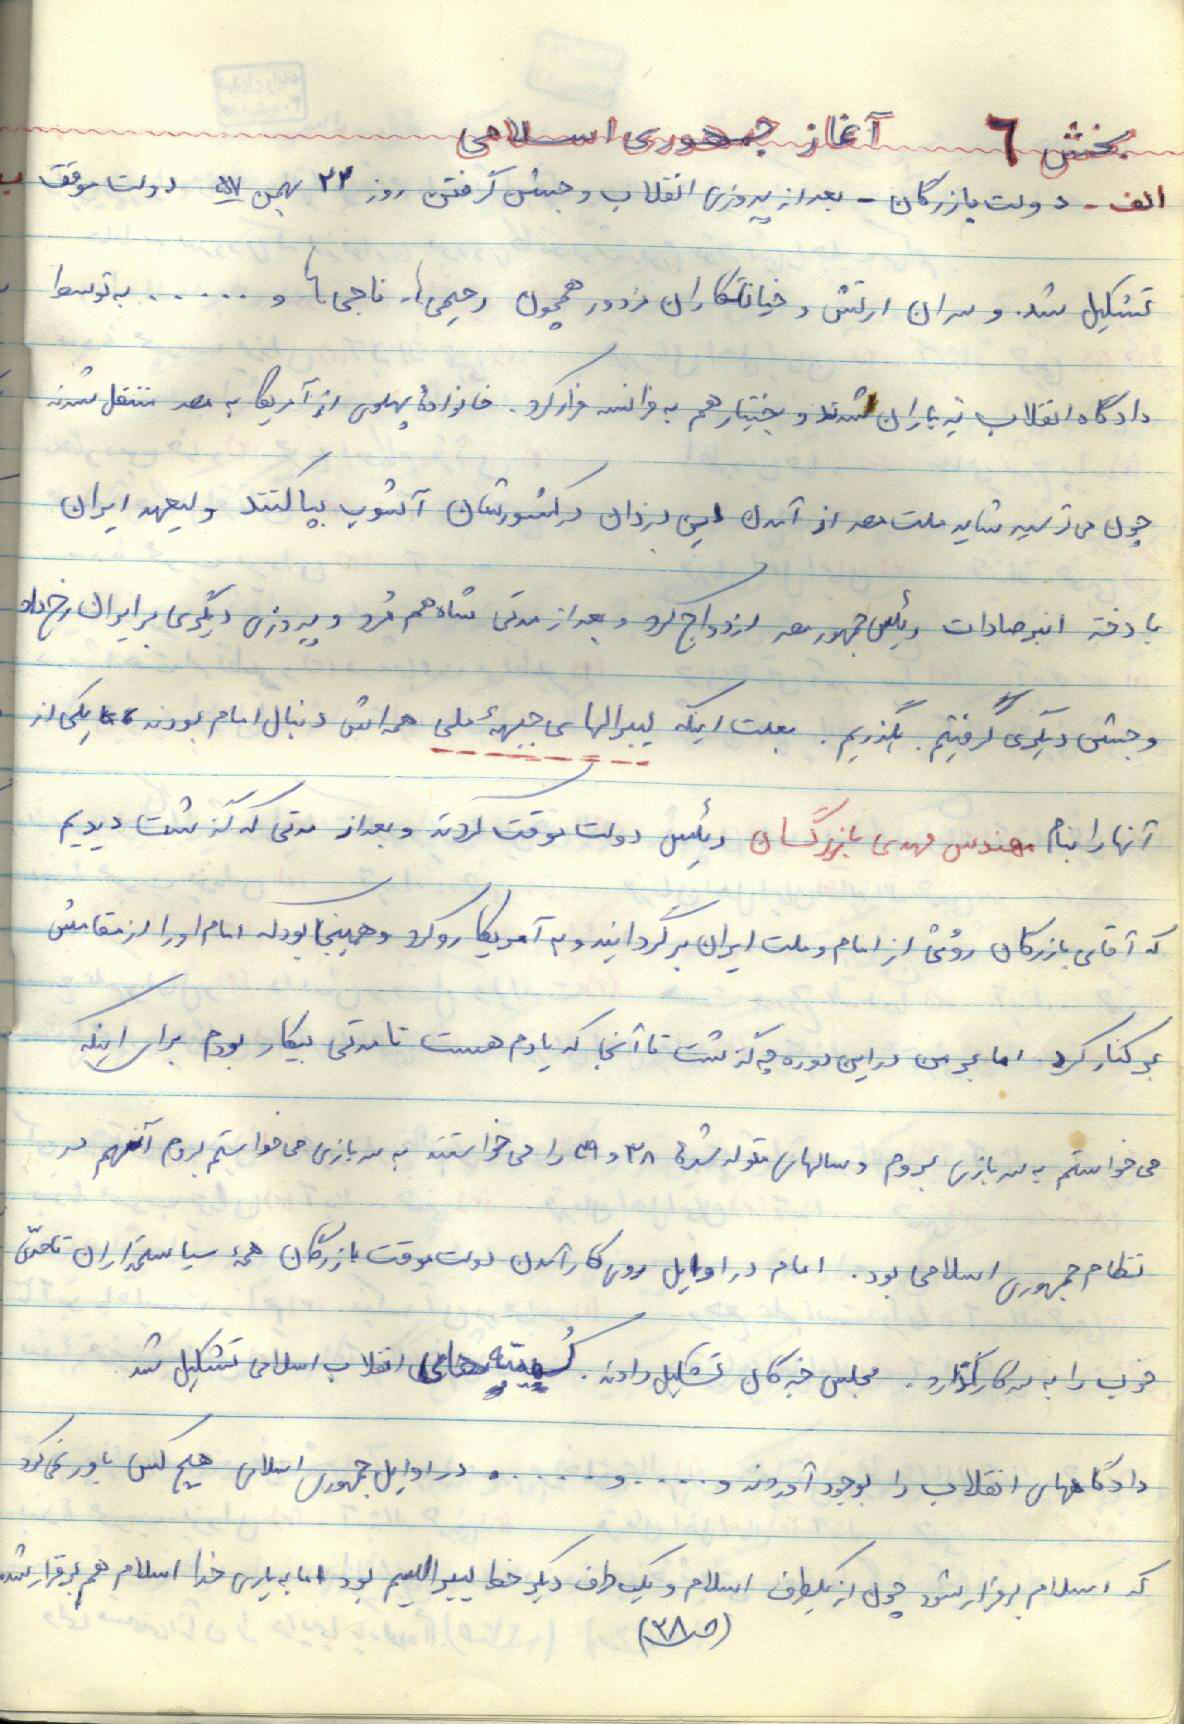 بخش ٦ آغاز جمهوری اسلامی
الف - دولت بازرگان - بعد از پیروزی انقلاب و جشن گرفتن روز ۲۲ بهمن ۵۷ دولت موقت
تشکیل شد. و سران ارتش و خیانتکاران مزدور همچون رحیمی‌ها، ناجی‌ها و ...... به توسط
دادگاه انقلاب تیرباران شدند و بختیار هم به فرانسه فرار کرد. خانوادهٔ پهلوی از آمریکا به مصر منتقل شدند
چون می‌ترسید شاید ملت مصر از آمدن این دزدان در کشورشان آشوب بپا کنند ولیعهد ایران
با دختر انور صادات رئیس جمهور مصر ازدواج کرد و بعد از مدتی شاه هم مُرد و پیروزی دیگری بر ایران رخ داد
و جشن دیگری گرفتیم. بگذریم. بعلت اینکه لیبرالهای جبههٔ ملی همه‌اش دنبال امام بودند یکی از
آنها را بنام مهندس مهدی بازرگان رئیس دولت موقت کردند و بعد از مدتی که گذشت دیدیم
که آقای بازرگان روُش از امام و ملت ایران برگردانید و به آمریکا رو کرد و همینجا بود که امام او را از مقامش
بر کنار کرد. اما بر من در این دوره چه گذشت تا آنجا که یادم هست تا مدتی بیکار بودم برای اینکه
می‌خواستم به سربازی بروم و سالهای متولد شدهٔ ۳۸ و ۳۹ را می‌خواستند به سربازی می‌خواستم بروم آنهم در
نظام جمهوری اسلامی بود. امام در اوایل روی کار آمدن دولت موقت بازرگان همهٔ سیاستمداران تاحدّی
خوب را به سر کار گذارد. مجلس خبرگان تشکیل دادند. کُمیته‌های انقلاب اسلامی تشکیل شد.
دادگاههای انقلاب را بوجود آوردند و ..... و ...... در اوایل جمهوری اسلامی هیچ کس باور نمی‌کرد
که اسلام برقرار بشود چون از یکطرف اسلام و یک طرف دیگر خط لیبرالیسم بود اما به یاری خدا اسلام هم برقرار شد
(ص ۳۸)